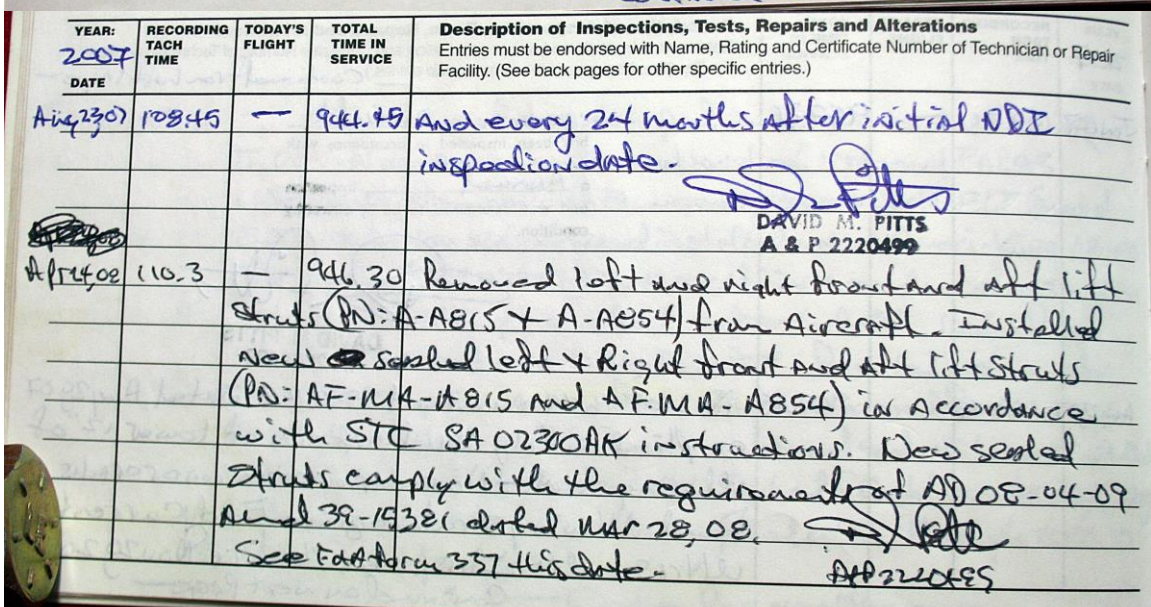 YEAR: 2007
DATE
RECORDING TACH TIME
TODAY'S FLIGHT
TOTAL TIME IN SERVICE
Description of Inspections, Tests, Repairs and Alterations
Entries must be endorsed with Name, Rating and Certificate Number of Technician or Repair
Facility. (See back pages for other specific entries.)
Aug, 23, 07 108.45 — 944.45 And every 24 months After initial NDI
inspection date.
DAVID M. PITTS
A & P 2220499
110.3 — 946.30 Removed left and right front And aft lift
struts (PN: A-A815 + A-A854) from Aircraft. Installed
New sealed left + Right front and Aft lift struts
(PN: AF-MA-A815 and AF-MA-A854) in Accordance
with STC SA02300AK instructions. New sealed
struts comply with the requirements of AD 08-04-09
Amd 39-15381 dated MAR 28, 08.
See FAA form 337 this date.
A&P 2220499